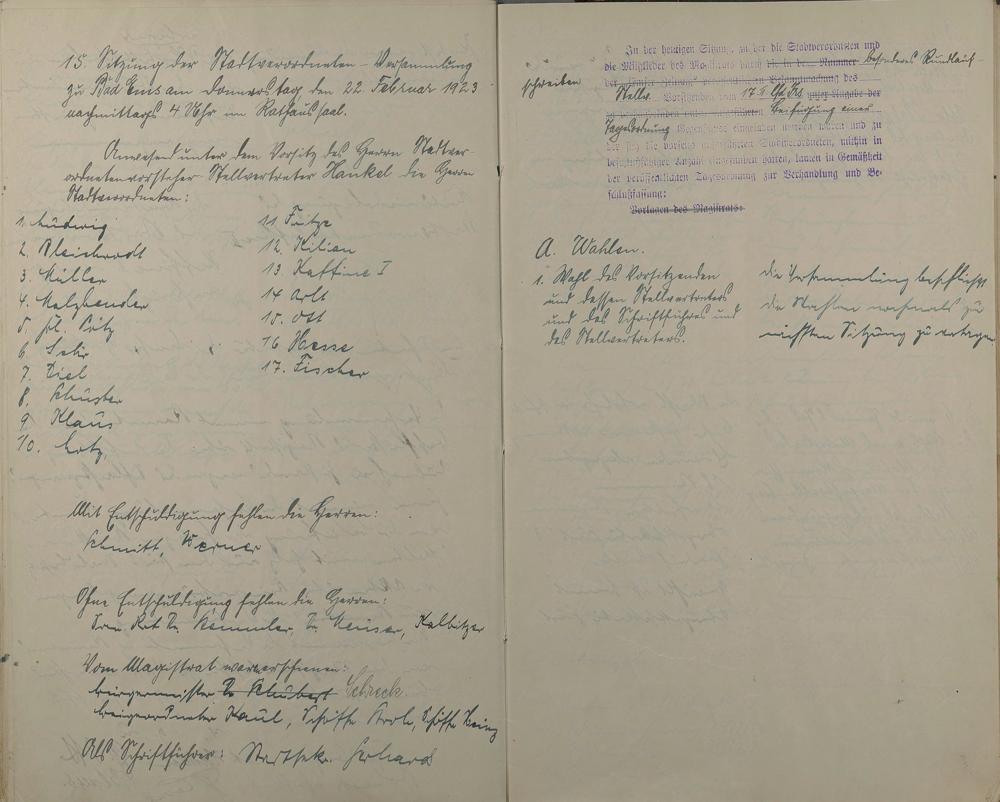 15. Sitzung der Stadtverordneten-Versammlung
zu Bad Ems am Donnerstag den 22. Februar 1923
nachmittags 4 Uhr im Rathaussaal.
Anwesend unter dem Vorsitz des Herrn Stadtver-
ordnetenvorsteher-Stellvertreter Hankel die Herren
Stadtverordneten:
1. Ludwig
2. Bleichrodt
3. Müller
4.
5.
6.
7. Diel
8. Schuster
9. Klaus
10. Lotz
11 Fritze
12. Kilian
13. Kaffine I
14 Arlt
15. Ott
16 Hesse
17. Fischer
Mit Entschuldigung fehlen die Herren:
Schmitt, Werner
Ohne Entschuldigung fehlen die Herren:
San. Rat Dr. Dr. Kalbitzer
Vom Magistrat waren erschienen:
Bürgermeister Dr Schubert Schreck.
Beigeordneter Kaul, Schöffe Schöffe
Als Schriftführer: Stadtsekr. Gerhard
Zu der heutigen Sitzung, zu der die Stadtverordneten und
die Mitglieder des Magistrats durch die in der Nummer besonderes Rundlauf-
schreiben der Emser Zeitung Bekanntmachung des
Stellv. Vorstehers vom 17. II. unter Angabe der
Beifügung einer
Tagesordnung eingeladen worden waren und zu
der sich die Stadtverordneten, mithin in
beschlußfähiger Anzahl eingefunden hatten, kamen in Gemäßheit
der veröffentlichten Tagesordnung zur Verhandlung und Be-
schlußfassung:
Vorlagen des Magistrats.
A. Wahlen.
1. Wahl des Vorsitzenden
und dessen Stellvertreters
und des Schriftführers und
des Stellvertreters.
Die Versammlung beschließt
die Wahlen nochmals zu
nächsten Sitzung zu vertagen